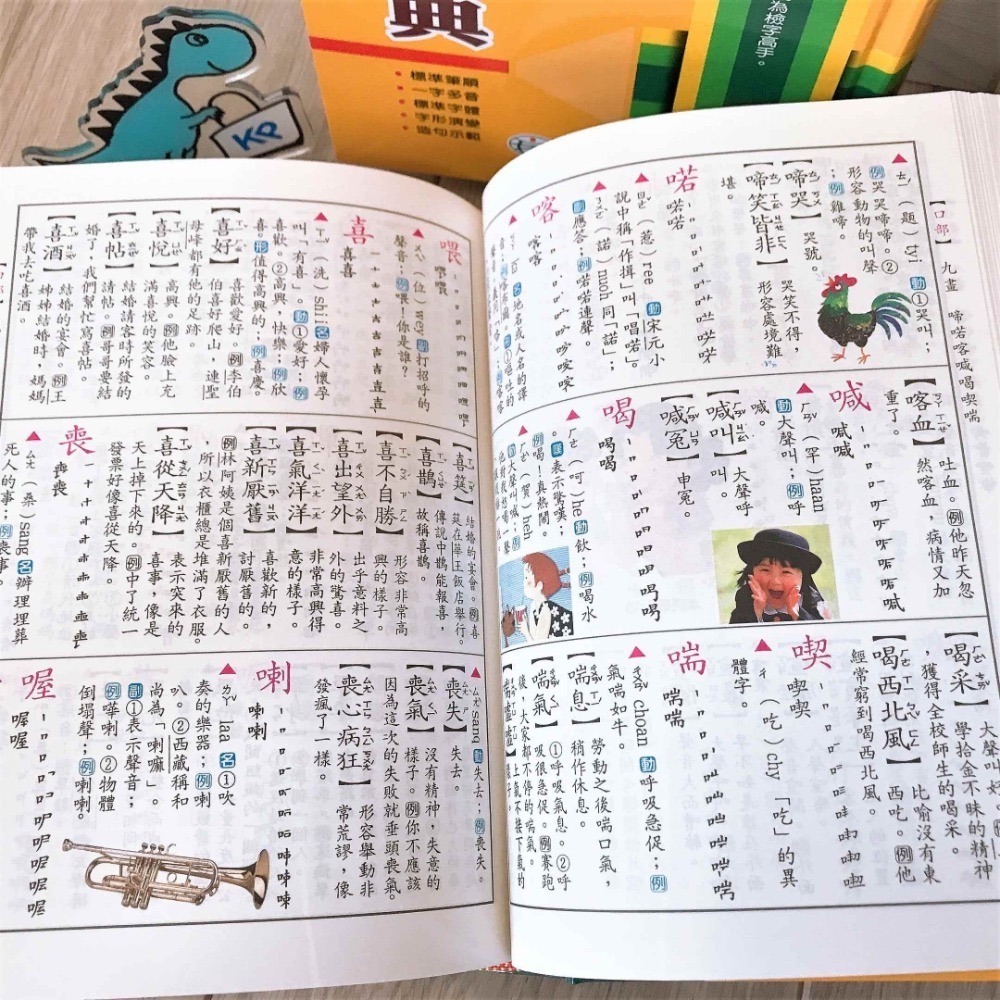 典
為檢字高手。
•標準筆順
•一字多音
•標準字體
•字形演變
•造句示範
KP
【口部】 九畫 啼喏喀喊喝喫喘
(題) tyi 動①哭叫;
例哭哭啼啼。②
形容動物的叫聲
;例雞啼。
【啼哭】 哭號。
【啼笑皆非】 哭笑不得,
形容處境難
堪。
喏 喏喏
(惹) ree 動宋元小
說中稱「作揖」叫「唱喏」。
(諾) noh 同「諾」;
動應答;例喏喏連聲。
喀 喀喀
【喀血】 吐血。例他昨天忽
然喀血,病情又加
重了。
喊 喊喊
(罕) haan
動大聲叫;例呼
喊。
【喊叫】 大聲呼
叫。
【喊冤】 申冤。
喝 喝喝
(呵) he 動飲;例喝水
。嘆表示驚嘆;
例喝!真熱鬧。
(賀) heh
動大聲叫喊;
【喝采】 學拾金不昧的精神
,獲得全校師生的喝采。
【喝西北風】 比喻沒有東
西吃。例他
經常窮到喝西北風。
喫 喫喫
ㄔ (吃) chy 「吃」的異
體字。
喘 喘喘
choan 動呼吸急促;例
氣喘如牛。
【喘息】 勞動之後喘口氣,
稍作休息。
【喘氣】 ①呼吸氣息。②呼
吸很急促。例賽跑
後,大家都不停的喘氣。
喂 喂喂
(位) wey 動打招呼的
聲音;例喂!你是誰?
喜 喜喜
ㄒㄧˇ (洗) shii 名婦人懷孕
叫「有喜」。動①愛好;例
喜歡。②高興,快樂;例欣
喜。形值得高興的;例喜慶。
【喜好】 喜歡愛好。例李伯
伯喜好爬山,連聖
母峰都有他的足跡。
【喜悅】 高興。例他臉上充
滿喜悅的笑容。
【喜帖】 結婚請客時所發的
請帖。例哥哥要結
婚了,我們幫忙寫喜帖。
【喜酒】 結婚的宴會。例王
姊姊結婚時,媽媽
帶我去吃喜酒。
【喜筵】 結婚的宴會。例喜
筵在華王飯店舉行。
【喜鵲】 傳說中鵲能報喜,
故稱喜鵲。
【喜不自勝】 形容非常高
興的樣子。
【喜出望外】 出乎意料之
外的驚喜。
【喜氣洋洋】 非常高興得
意的樣子。
【喜新厭舊】 喜歡新的,
討厭舊的。
例林阿姨是個喜新厭舊的人
,所以衣櫃總是堆滿了衣服。
【喜從天降】 表示突來的
喜事,像是
天上掉下來的。例中了統一
發票好像喜從天降。
喪 喪喪
ㄙㄤ (桑) sang 名辦理埋葬
死人的事;例喪事。
ㄙㄤˋ sanq 動失去;例喪失。
【喪失】 失去。
【喪氣】 沒有精神,失意的
樣子。例你不應該
因為這次的失敗就垂頭喪氣。
【喪心病狂】 形容舉動非
常荒謬,像
發瘋了一樣。
喇 喇喇
ㄌㄚˇ laa 名①吹
奏的樂器;例喇
叭。②西藏稱和
尚為「喇嘛」。
副①表示聲音;
例嘩喇。②物體
倒塌聲;例喇喇。
喔 喔喔